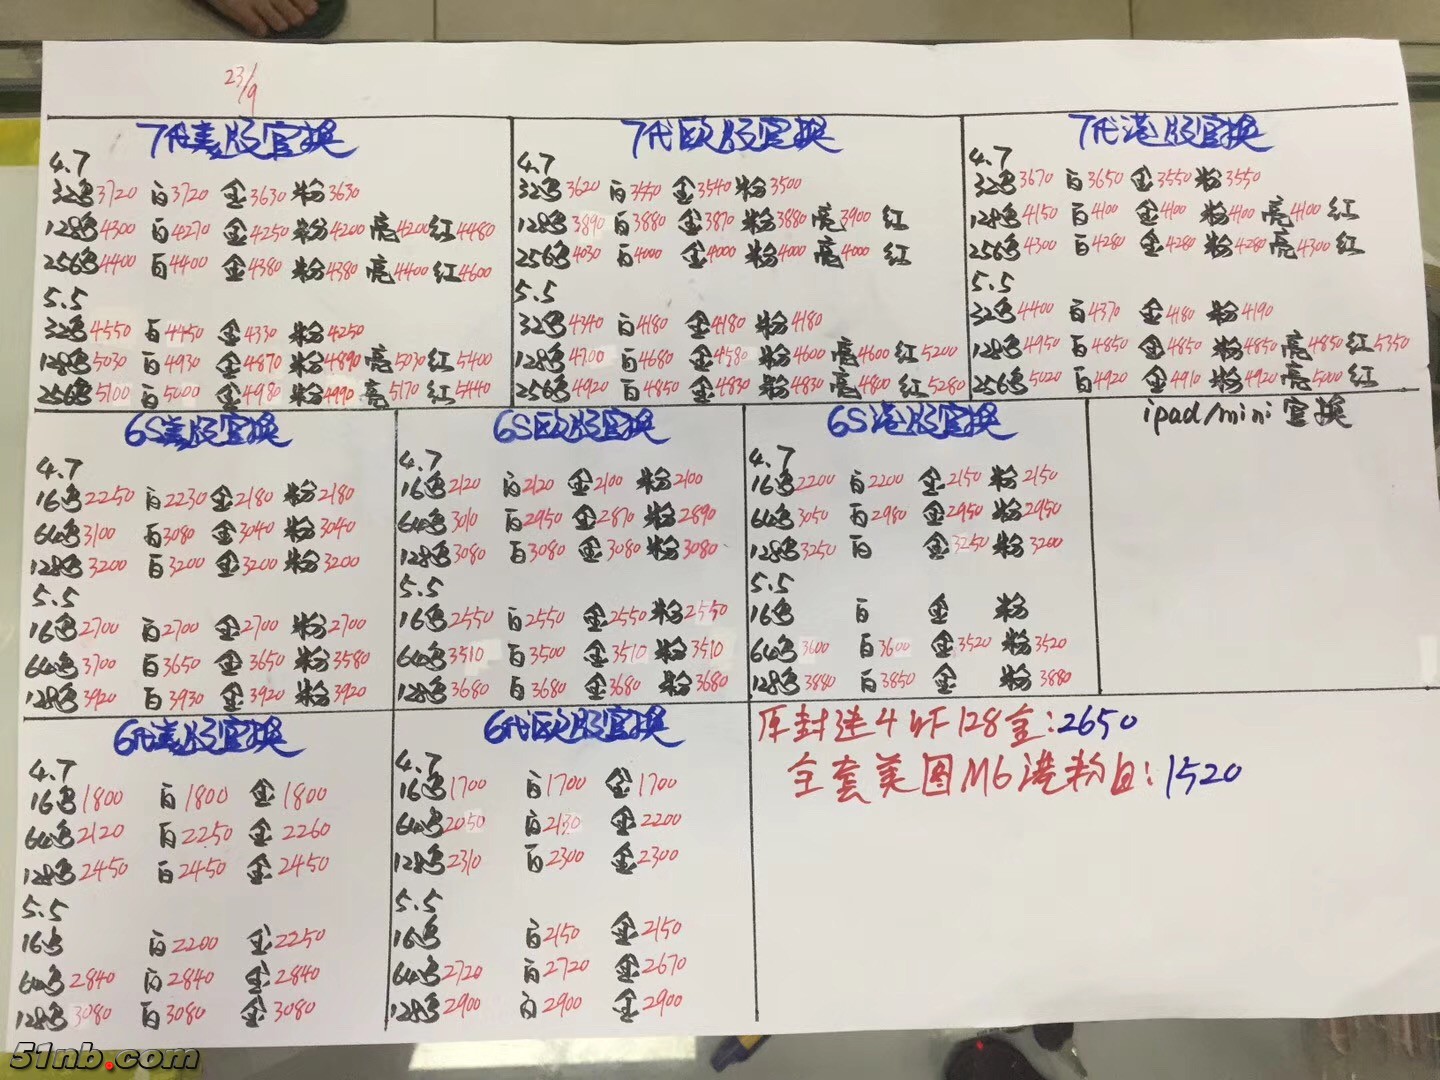 23/9
7代美版官换
4.7
32黑3720 白3720 金3630 粉3630
128黑4300 白4270 金4250 粉4200 亮4200 红4480
256黑4400 白4400 金4380 粉4380 亮4400 红4600
5.5
32黑4550 白4450 金4330 粉4250
128黑5030 白4930 金4870 粉4890 亮5030 红5400
256黑5100 白5000 金4980 粉4990 亮5170 红5440
7代欧版官换
4.7
32黑3620 白3550 金3540 粉3500
128黑3890 白3880 金3870 粉3880 亮3900 红
256黑4030 白4000 金4000 粉4000 亮4000 红
5.5
32黑4340 白4180 金4180 粉4180
128黑4700 白4680 金4580 粉4600 亮4600 红5200
256黑4920 白4850 金4830 粉4830 亮4800 红5280
7代港版官换
4.7
32黑3670 白3650 金3550 粉3550
128黑4150 白4100 金4100 粉4100 亮4100 红
256黑4300 白4280 金4280 粉4280 亮4300 红
5.5
32黑4400 白4370 金4180 粉4190
128黑4950 白4850 金4850 粉4850 亮4850 红5350
256黑5020 白4920 金4910 粉4920 亮5000 红
6S美版官换
4.7
16黑2250 白2230 金2180 粉2180
64黑3100 白3080 金3040 粉3040
128黑3200 白3200 金3200 粉3200
5.5
16黑2700 白2700 金2700 粉2700
64黑3700 白3650 金3650 粉3580
128黑3920 白3930 金3920 粉3920
6S欧版官换
4.7
16黑2120 白2120 金2100 粉2100
64黑3010 白2950 金2870 粉2890
128黑3080 白3080 金3080 粉3080
5.5
16黑2550 白2550 金2550 粉2550
64黑3510 白3500 金3510 粉3510
128黑3680 白3680 金3680 粉3680
6S港版官换
4.7
16黑2200 白2200 金2150 粉2150
64黑3050 白2980 金2950 粉2950
128黑3250 白 金3250 粉3200
5.5
16黑 白 金 粉
64黑3600 白3600 金3520 粉3520
128黑3880 白3850 金 粉3880
ipad/mini官换
6代美版官换
4.7
16黑1800 白1800 金1800
64黑2120 白2250 金2260
128黑2450 白2450 金2450
5.5
16黑 白2200 金2250
64黑2840 白2840 金2840
128黑3080 白3080 金3080
6代欧版官换
4.7
16黑1700 白1700 金1700
64黑2050 白2130 金2200
128黑2310 白2300 金2300
5.5
16黑 白2150 金2150
64黑2720 白2720 金2670
128黑2900 白2900 金2900
原封迷4 128金:2650
全套美图M6港粉白:1520
51nb.com